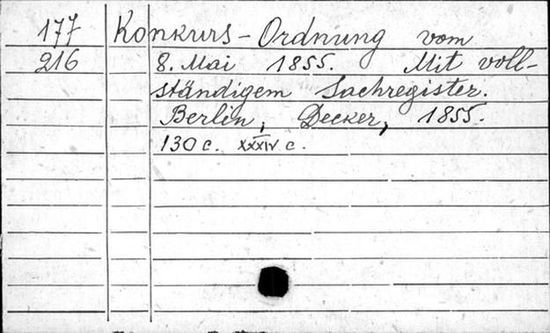 177 Konkurs-Ordnung vom
216 8. Mai 1855. Mit voll-
ständigem Sachregister.
Berlin, Decker, 1855.
130 c. XXXIV c.